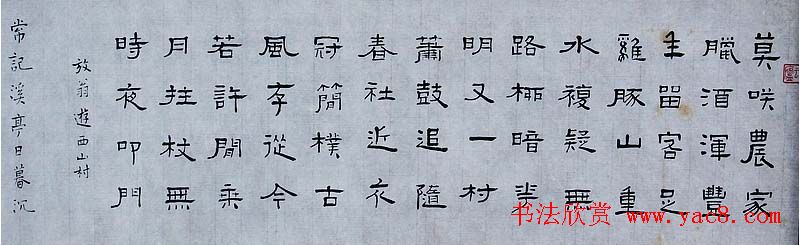 莫咲農家
臘酒渾豐
年留客足
雞豚山重
水複疑無
路柳暗花
明又一村
簫鼓追隨
春社近衣
冠簡樸古
風存從今
若許閒乘
月拄杖無
時夜叩門
放翁遊西山村
常記溪亭日暮沉
书法欣赏 www.yac8.com